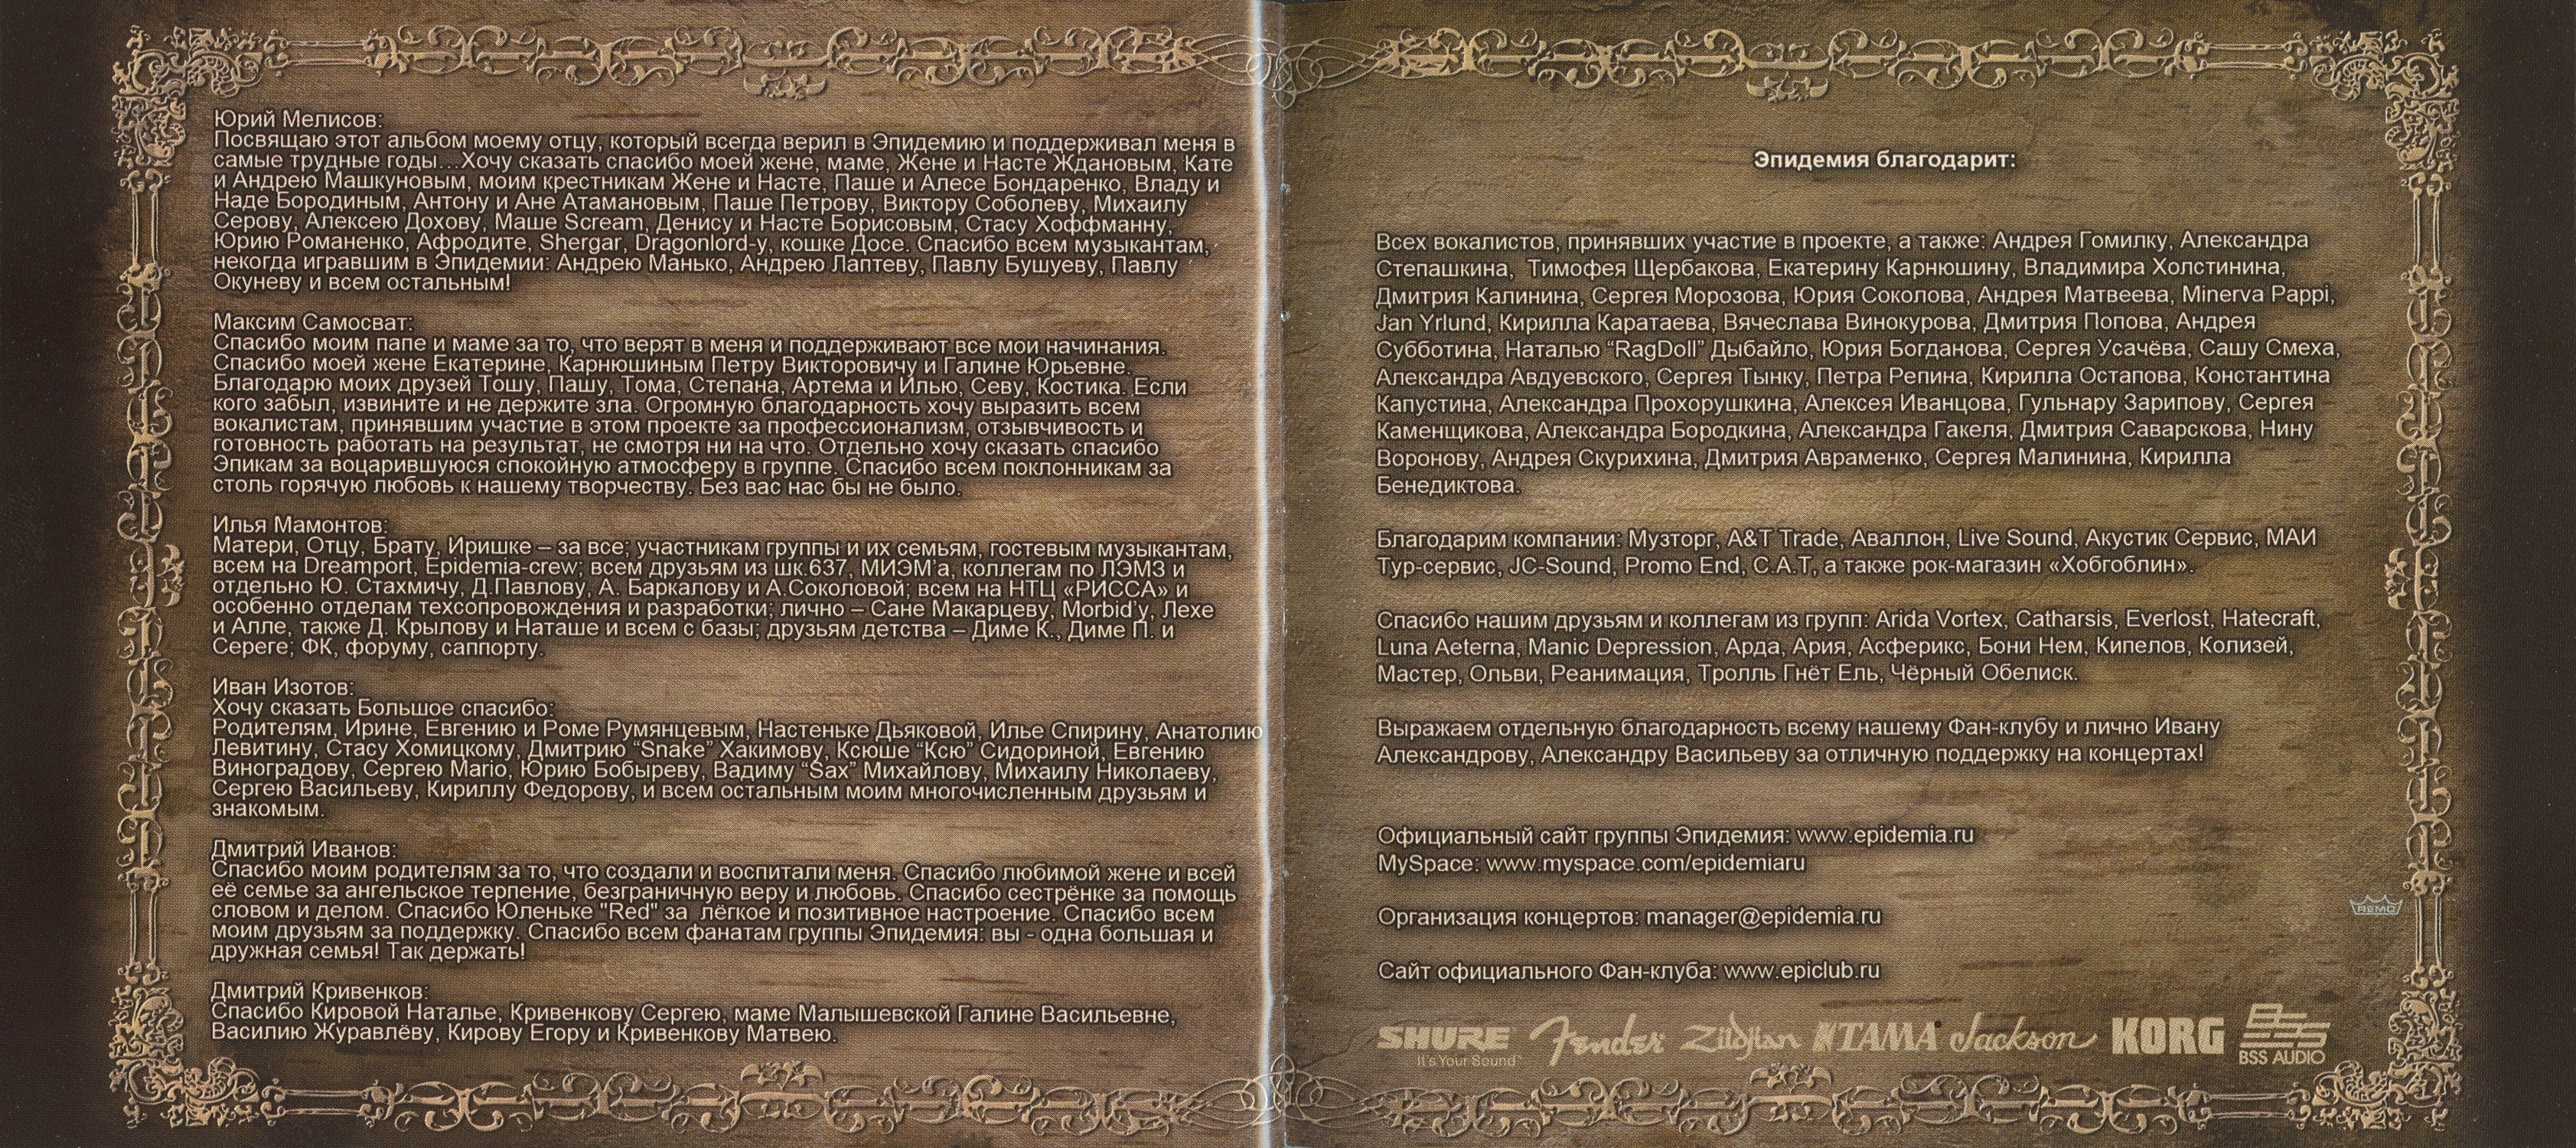 Юрий Мелисов:
Посвящаю этот альбом моему отцу, который всегда верил в Эпидемию и поддерживал меня в
самые трудные годы...Хочу сказать спасибо моей жене, маме, Жене и Насте Ждановым, Кате
и Андрею Машкуновым, моим крестникам Жене и Насте, Паше и Алесе Бондаренко, Владу и
Наде Бородиным, Антону и Ане Атамановым, Паше Петрову, Виктору Соболеву, Михаилу
Серову, Алексею Дохову, Маше Scream, Денису и Насте Борисовым, Стасу Хоффманну,
Юрию Романенко, Афродите, Shergar, Dragonlord-у, кошке Досе. Спасибо всем музыкантам,
некогда игравшим в Эпидемии: Андрею Манько, Андрею Лаптеву, Павлу Бушуеву, Павлу
Окуневу и всем остальным!
Максим Самосват:
Спасибо моим папе и маме за то, что верят в меня и поддерживают все мои начинания.
Спасибо моей жене Екатерине, Карнюшиным Петру Викторовичу и Галине Юрьевне.
Благодарю моих друзей Тошу, Пашу, Тома, Степана, Артема и Илью, Севу, Костика. Если
кого забыл, извините и не держите зла. Огромную благодарность хочу выразить всем
вокалистам, принявшим участие в этом проекте за профессионализм, отзывчивость и
готовность работать на результат, не смотря ни на что. Отдельно хочу сказать спасибо
Эпикам за воцарившуюся спокойную атмосферу в группе. Спасибо всем поклонникам за
столь горячую любовь к нашему творчеству. Без вас нас бы не было.
Илья Мамонтов:
Матери, Отцу, Брату, Иришке – за все; участникам группы и их семьям, гостевым музыкантам,
всем на Dreamport, Epidemia-crew; всем друзьям из шк.637, МИЭМ'а, коллегам по ЛЭМЗ и
отдельно Ю. Стахмичу, Д.Павлову, А. Баркалову и А.Соколовой; всем на НТЦ «РИССА» и
особенно отделам техсопровождения и разработки; лично – Сане Макарцеву, Morbid'у, Лехе
и Алле, также Д. Крылову и Наташе и всем с базы; друзьям детства – Диме К., Диме П. и
Сереге; ФК, форуму, саппорту.
Иван Изотов:
Хочу сказать Большое спасибо:
Родителям, Ирине, Евгению и Роме Румянцевым, Настеньке Дьяковой, Илье Спирину, Анатолию
Левитину, Стасу Хомицкому, Дмитрию “Snake” Хакимову, Ксюше “Ксю” Сидориной, Евгению
Виноградову, Сергею Mario, Юрию Бобыреву, Вадиму “Sax” Михайлову, Михаилу Николаеву,
Сергею Васильеву, Кириллу Федорову, и всем остальным моим многочисленным друзьям и
знакомым.
Дмитрий Иванов:
Спасибо моим родителям за то, что создали и воспитали меня. Спасибо любимой жене и всей
её семье за ангельское терпение, безграничную веру и любовь. Спасибо сестрёнке за помощь
словом и делом. Спасибо Юленьке "Red" за лёгкое и позитивное настроение. Спасибо всем
моим друзьям за поддержку. Спасибо всем фанатам группы Эпидемия: вы - одна большая и
дружная семья! Так держать!
Дмитрий Кривенков:
Спасибо Кировой Наталье, Кривенкову Сергею, маме Малышевской Галине Васильевне,
Василию Журавлёву, Кирову Егору и Кривенкову Матвею.
Эпидемия благодарит:
Всех вокалистов, принявших участие в проекте, а также: Андрея Гомилку, Александра
Степашкина, Тимофея Щербакова, Екатерину Карнюшину, Владимира Холстинина,
Дмитрия Калинина, Сергея Морозова, Юрия Соколова, Андрея Матвеева, Minerva Pappi,
Jan Yrlund, Кирилла Каратаева, Вячеслава Винокурова, Дмитрия Попова, Андрея
Субботина, Наталью “RagDoll” Дыбайло, Юрия Богданова, Сергея Усачёва, Сашу Смеха,
Александра Авдуевского, Сергея Тынку, Петра Репина, Кирилла Остапова, Константина
Капустина, Александра Прохорушкина, Алексея Иванцова, Гульнару Зарипову, Сергея
Каменщикова, Александра Бородкина, Александра Гакеля, Дмитрия Саварскова, Нину
Воронову, Андрея Скурихина, Дмитрия Авраменко, Сергея Малинина, Кирилла
Бенедиктова.
Благодарим компании: Музторг, A&T Trade, Аваллон, Live Sound, Акустик Сервис, МАИ
Тур-сервис, JC-Sound, Promo End, C.A.T, а также рок-магазин «Хобгоблин».
Спасибо нашим друзьям и коллегам из групп: Arida Vortex, Catharsis, Everlost, Hatecraft,
Luna Aeterna, Manic Depression, Арда, Ария, Асферикс, Бони Нем, Кипелов, Колизей,
Мастер, Ольви, Реанимация, Тролль Гнёт Ель, Чёрный Обелиск.
Выражаем отдельную благодарность всему нашему Фан-клубу и лично Ивану
Александрову, Александру Васильеву за отличную поддержку на концертах!
Официальный сайт группы Эпидемия: www.epidemia.ru
MySpace: www.myspace.com/epidemiaru
Организация концертов: manager@epidemia.ru
Сайт официального Фан-клуба: www.epiclub.ru
REMO
SHURE Fender Zildjian TAMA Jackson KORG BSS
It's Your Sound™ BSS AUDIO